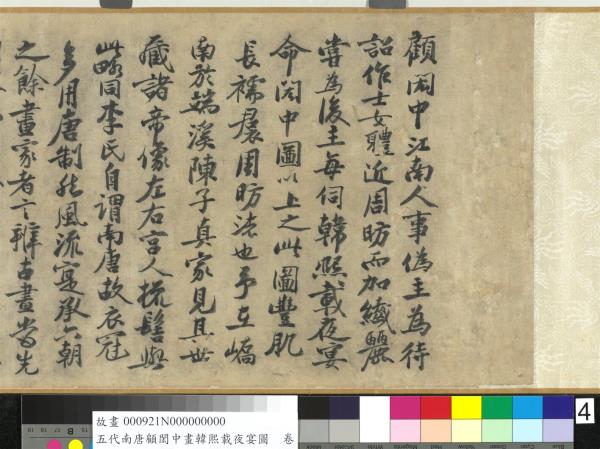 顧閎中江南人事偽主為待
詔作士女體近周昉而加纖麗
嘗為後主每伺韓熙載夜宴
命閎中圖以上之此圖豐肌
長襦裠周昉法也予在嶠
南於端溪陳子真家見其世
藏諸帝像左右宮人梳髻與
此略同李氏自謂南唐故衣冠
多用唐制然風流寔承六朝
之餘畫家者言辨古畫當先
故畫 000921N000000000
五代南唐顧閎中畫韓熙載夜宴圖 卷
B
4